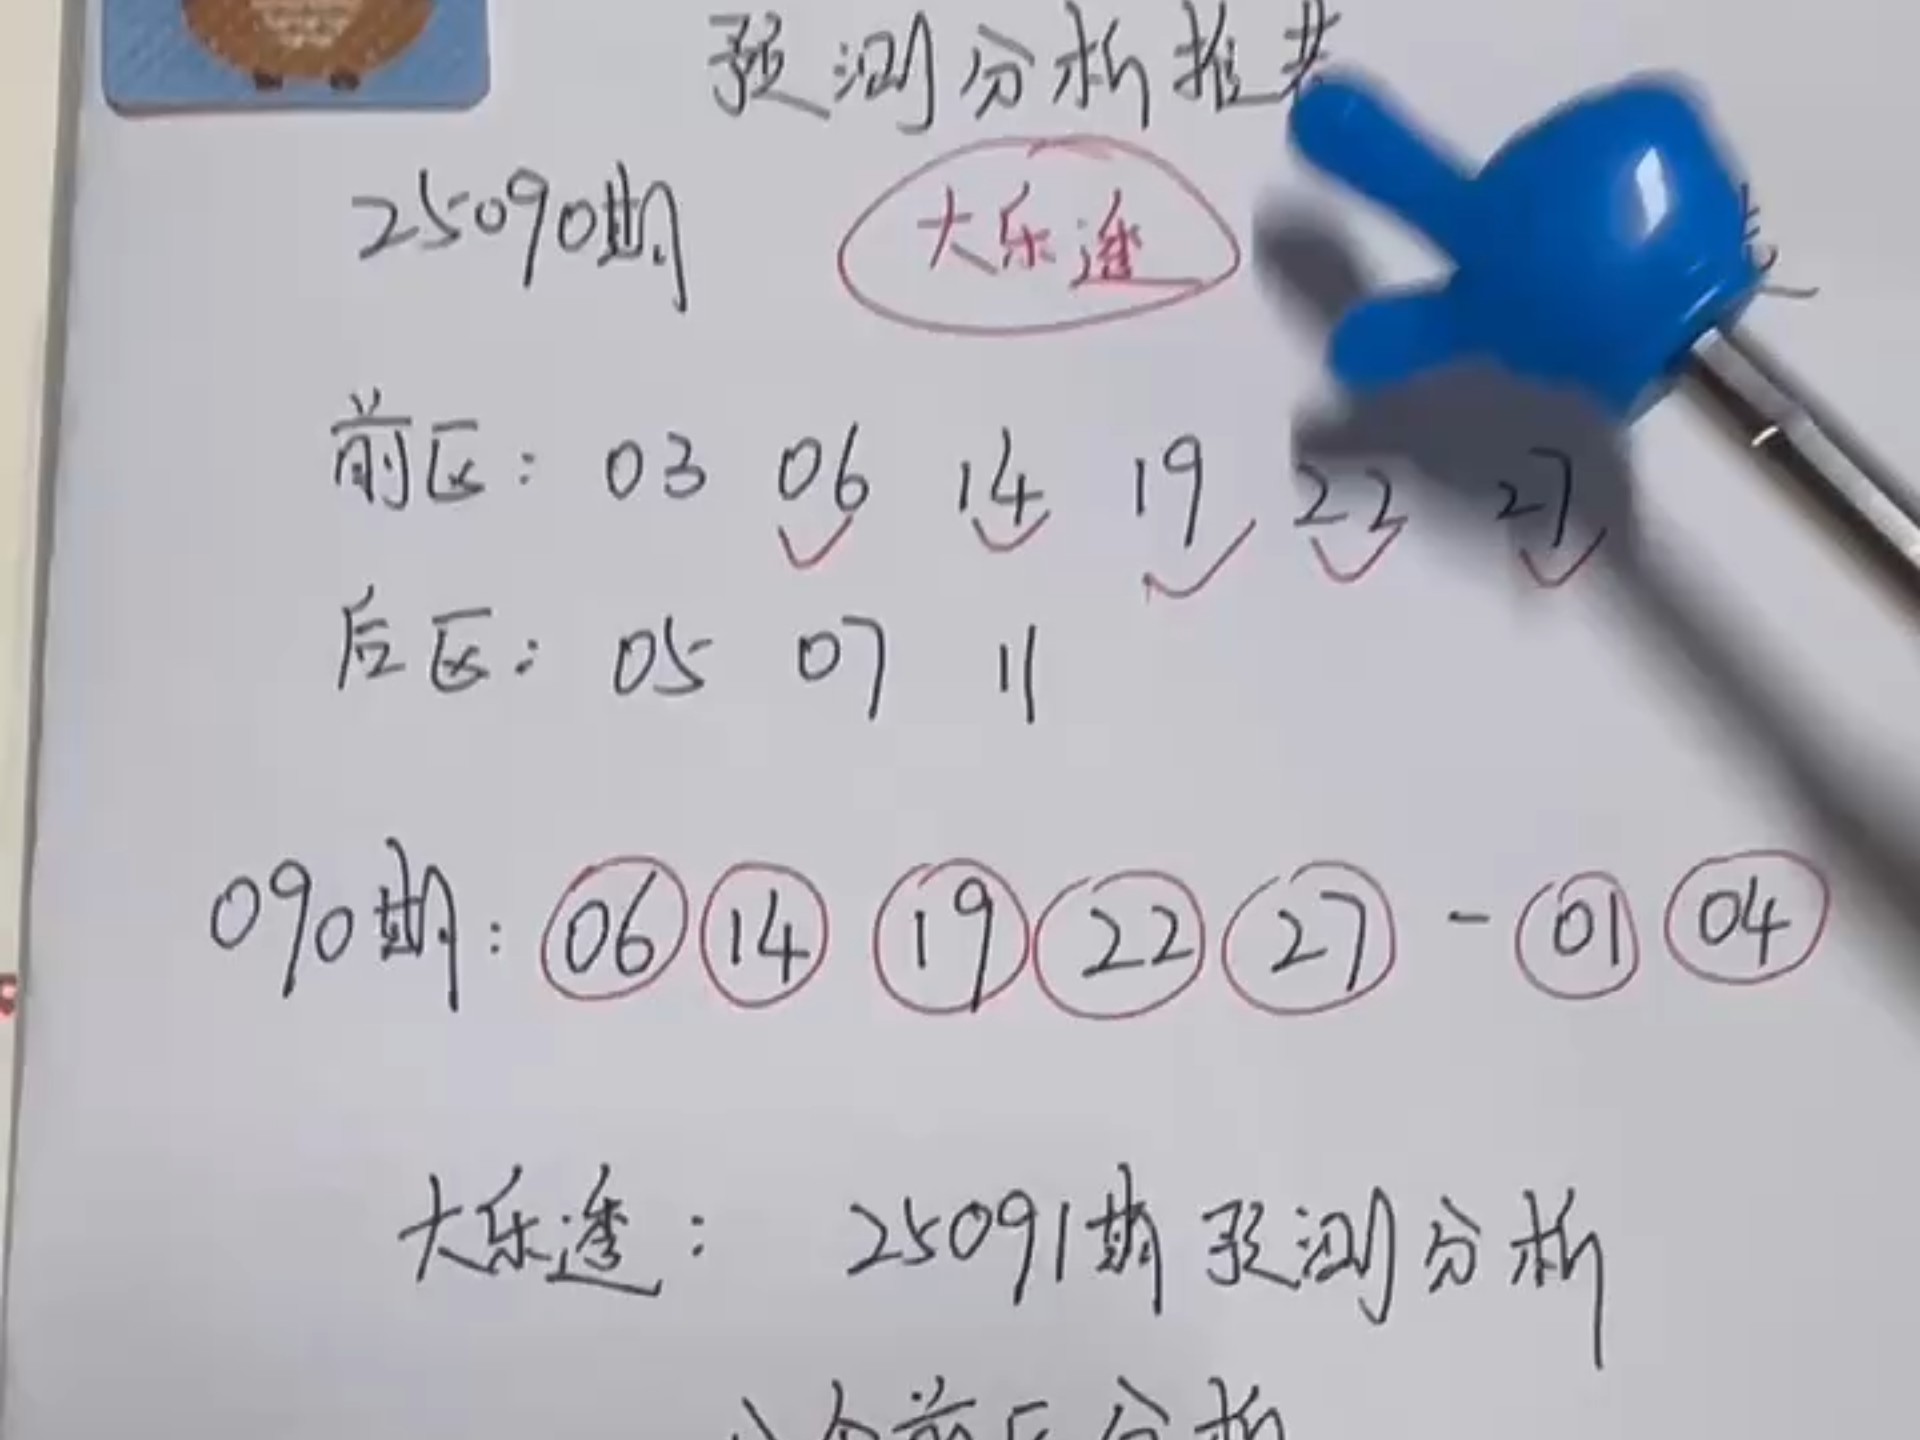 预测分析推荐
25090期 大乐透
前区: 03 06 14 19 22 27
后区: 05 07 11
090期: 06 14 19 22 27 - 01 04
大乐透: 25091期预测分析
个前区分析